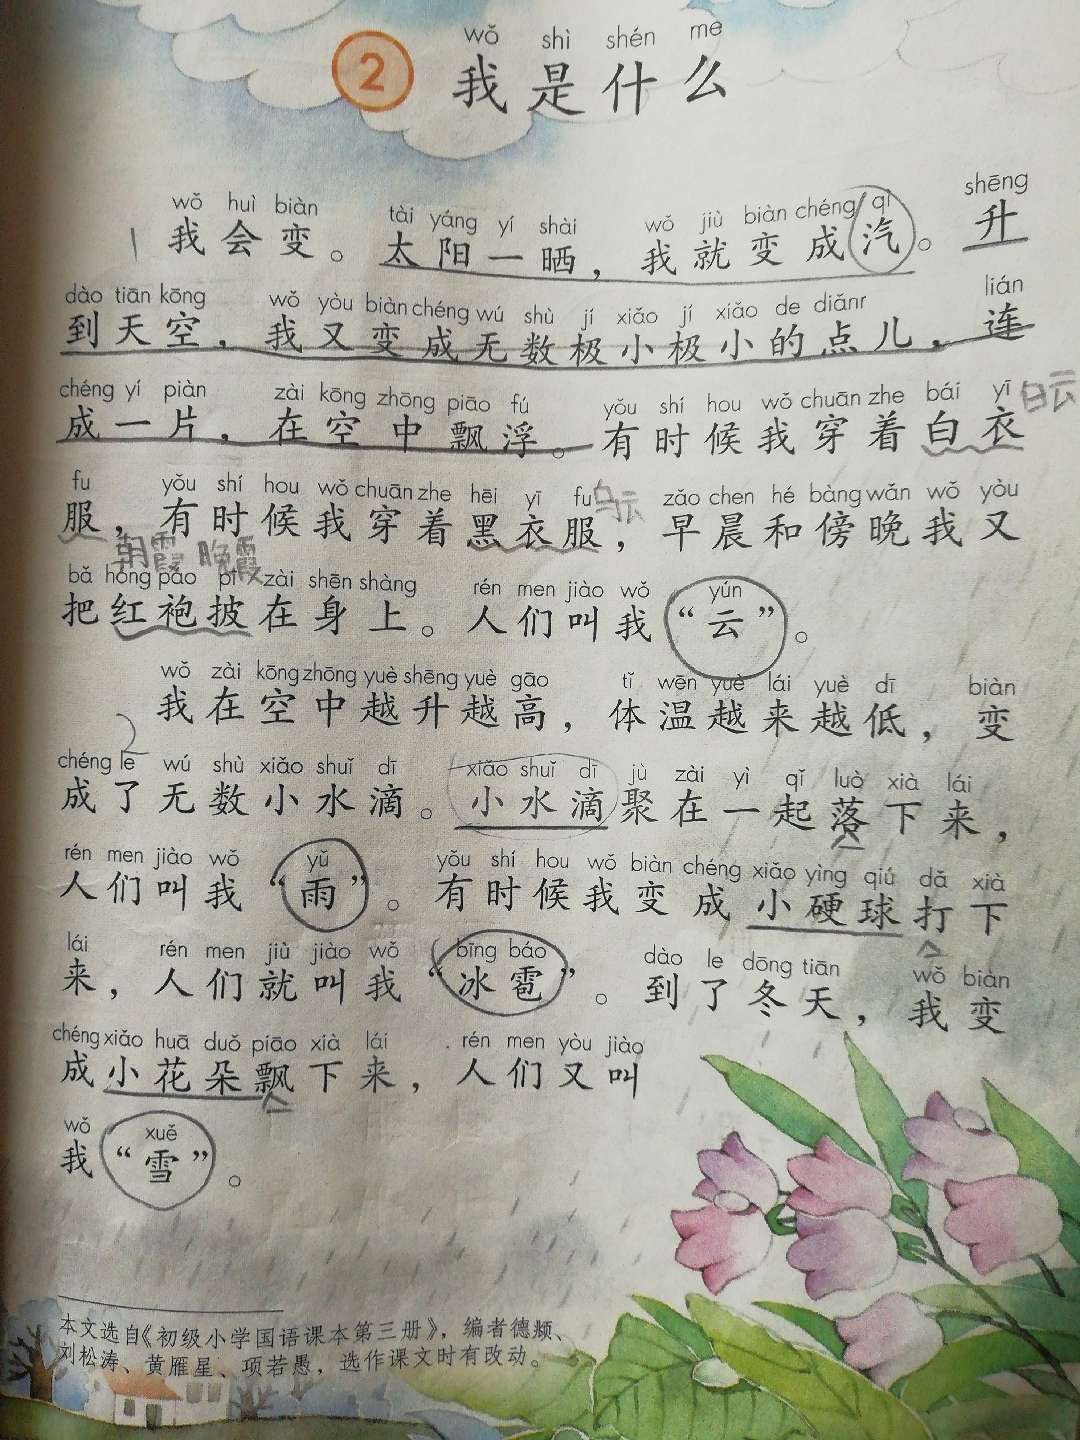 wǒ shì shén me
2 我是什么
wǒ huì biàn tài yáng yí shài wǒ jiù biàn chéng qì shēng
1 我会变。太阳一晒，我就变成汽。升
dào tiān kōng wǒ yòu biàn chéng wú shù jí xiǎo jí xiǎo de diǎnr lián
到天空，我又变成无数极小极小的点儿，连
chéng yí piàn zài kōng zhōng piāo fú yǒu shí hou wǒ chuān zhe bái yī
成一片，在空中飘浮。有时候我穿着白衣
白云
fu yǒu shí hou wǒ chuān zhe hēi yī fu zǎo chen hé bàng wǎn wǒ yòu
乌云
服，有时候我穿着黑衣服，早晨和傍晚我又
朝霞 晚霞
bǎ hóng páo pī zài shēn shàng rén men jiào wǒ yún
把红袍披在身上。人们叫我“云”。
wǒ zài kōng zhōng yuè shēng yuè gāo tǐ wēn yuè lái yuè dī biàn
2 我在空中越升越高，体温越来越低，变
chéng le wú shù xiǎo shuǐ dī xiǎo shuǐ dī jù zài yì qǐ luò xià lái
成了无数小水滴。小水滴聚在一起落下来，
rén men jiào wǒ yǔ yǒu shí hou wǒ biàn chéng xiǎo yìng qiú dǎ xià
人们叫我“雨”。有时候我变成小硬球打下
lái rén men jiù jiào wǒ bīng báo dào le dōng tiān wǒ biàn
来，人们就叫我“冰雹”。到了冬天，我变
chéng xiǎo huā duǒ piāo xià lái rén men yòu jiào
成小花朵飘下来，人们又叫
wǒ xuě
我“雪”。
本文选自《初级小学国语课本第三册》，编者德颊、
刘松涛、黄雁星、项若愚，选作课文时有改动。